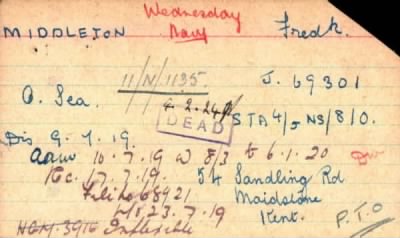 Wednesday
Navy
MIDDLETON Fredk.
11/N/1135 J. 69301
O. Sea. 4.2.24
DEAD
STA 4/5 NS/8/0.
Dis 9.7.19.
10.7.19 w 8/3 to 6.1.20
Rc. 17.7.19. 54 Sandling Rd
68921 Maidstone
23.7.19 Kent.
HCM. 3916 Inflexible P.T.O